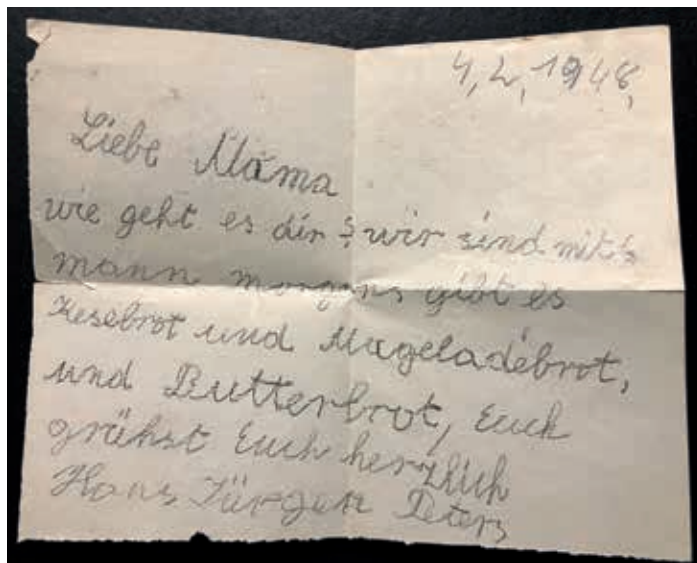 4,2,1948,
Liebe Mama
wie geht es dir? wir sind mit 5
mann morgens gibt es
Kesebrot und Mageladebrot,
und Butterbrot, Euch
grühst Euch herzlich
Hans Jürgen Peters